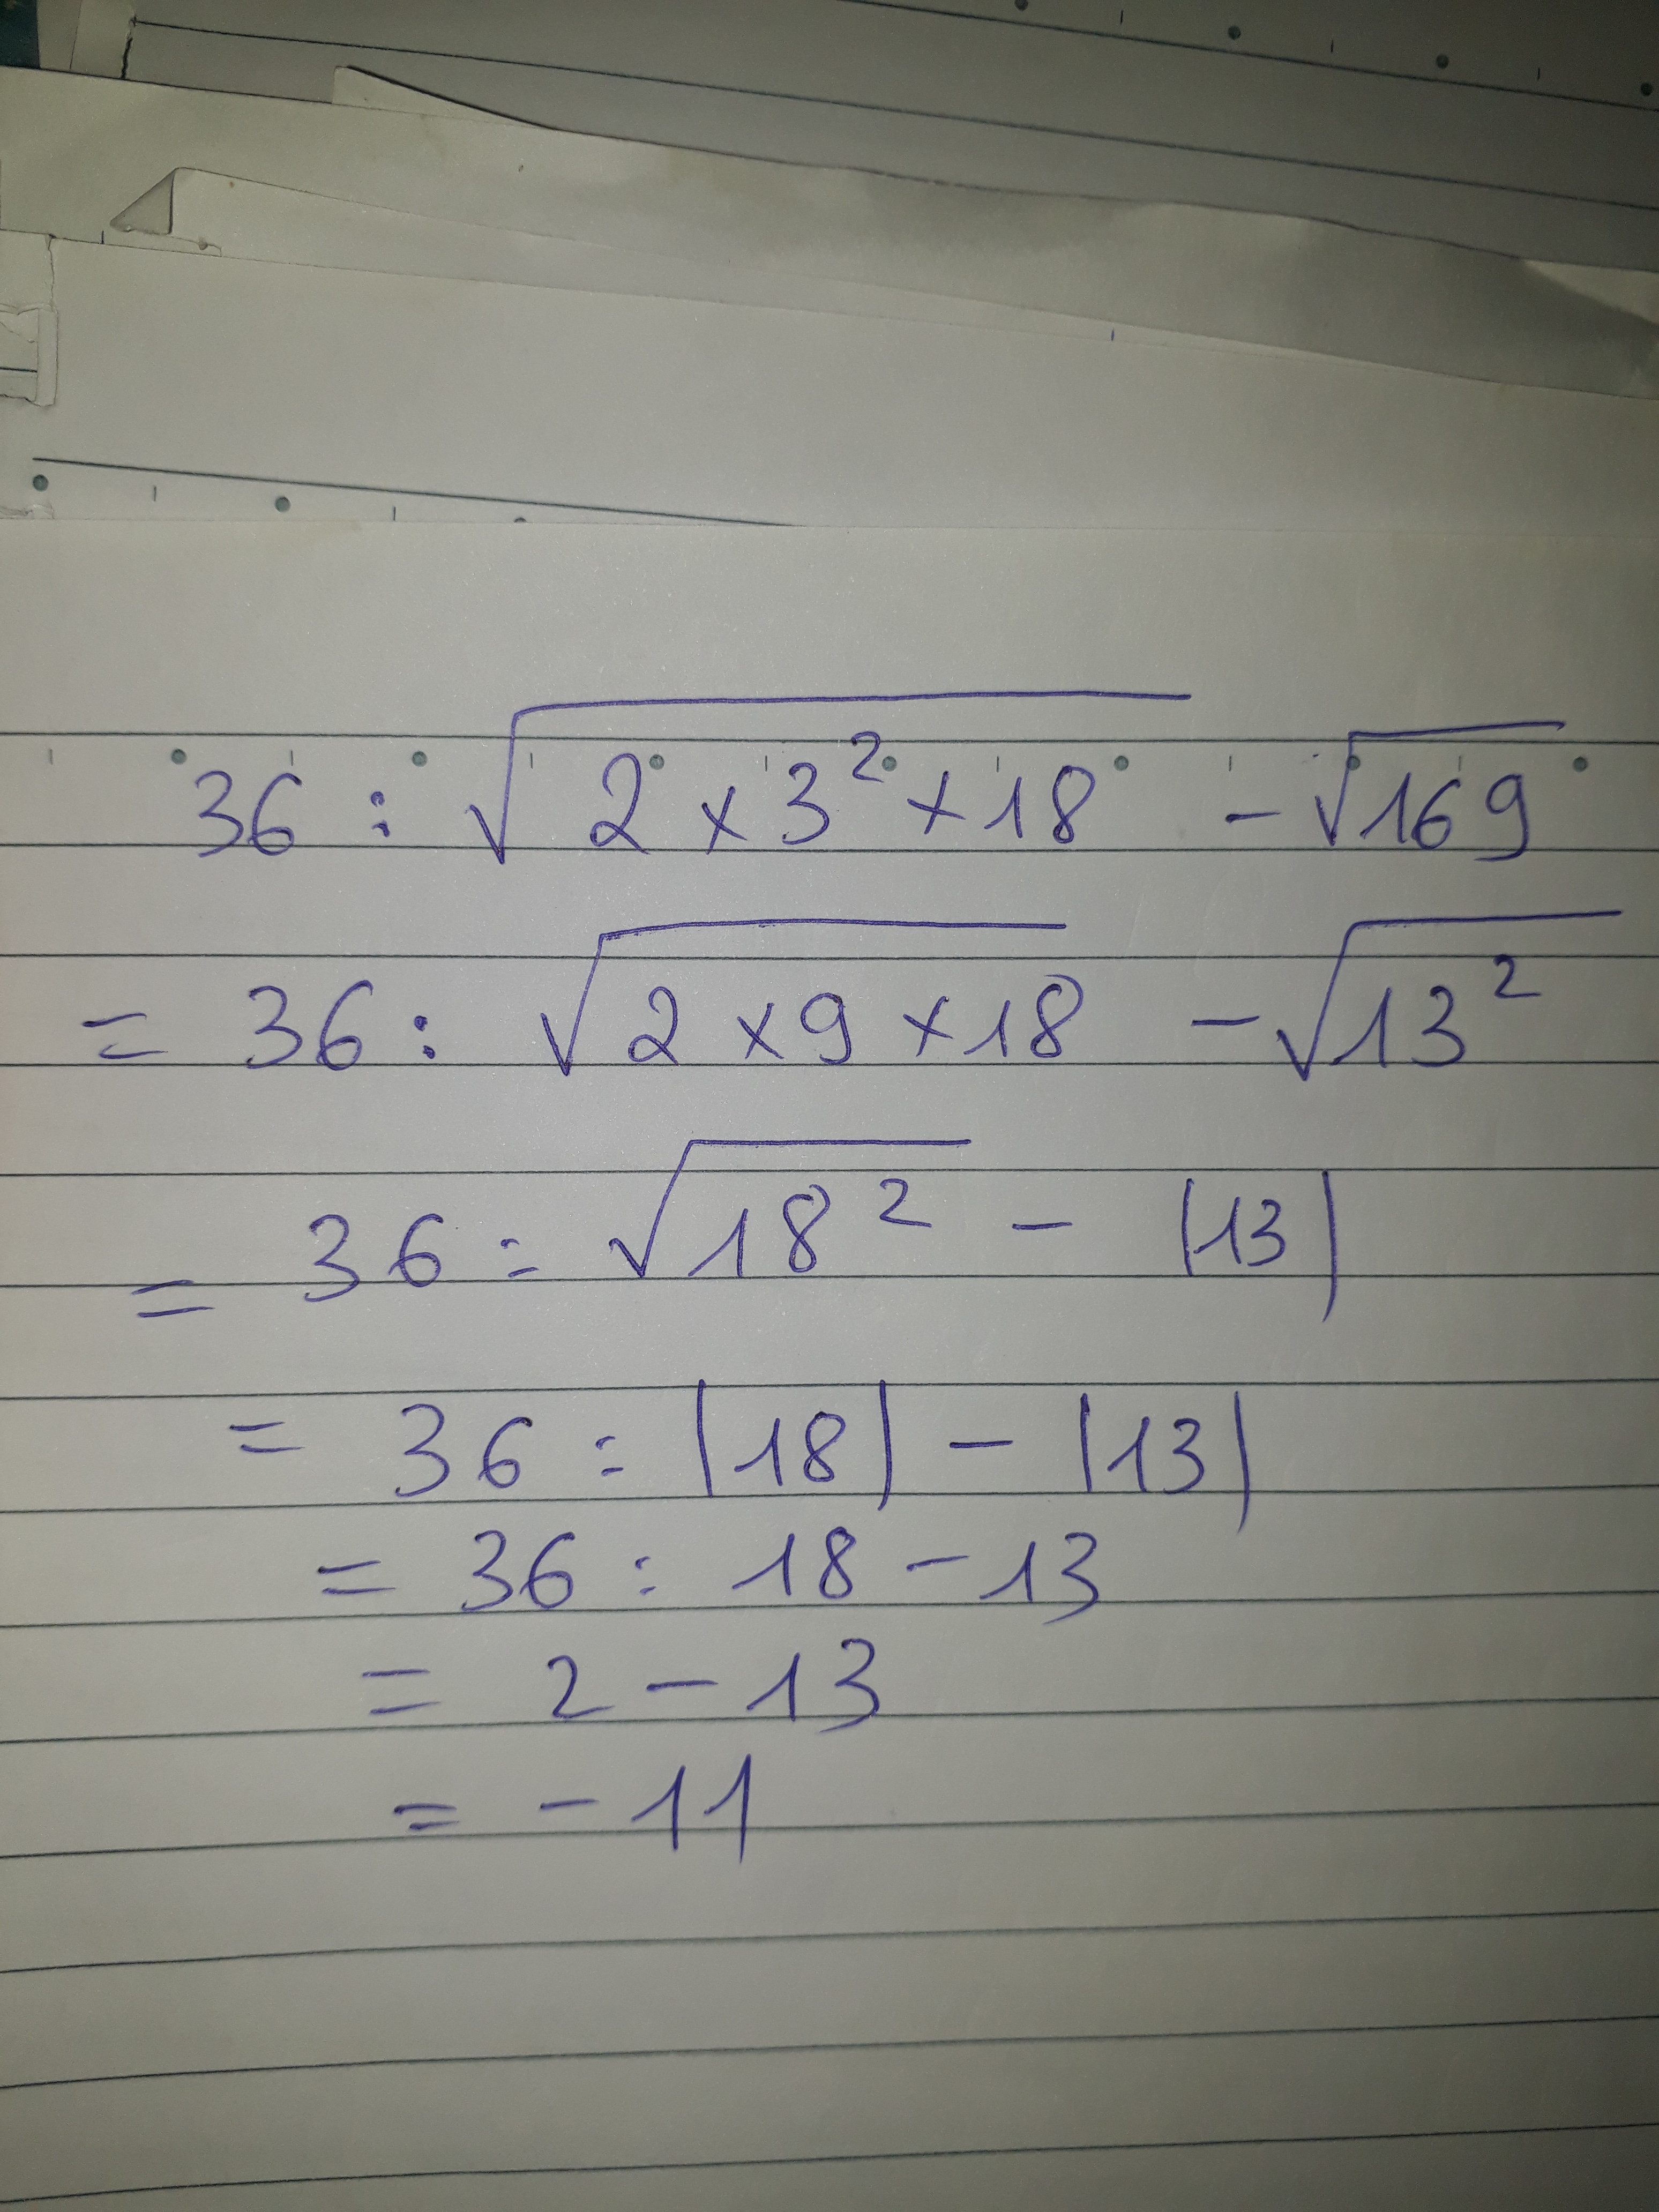 36 : √(2 × 3² × 18) - √169
= 36 : √(2 × 9 × 18) - √13²
= 36 : √18² - |13|
= 36 : |18| - |13|
= 36 : 18 - 13
= 2 - 13
= - 11